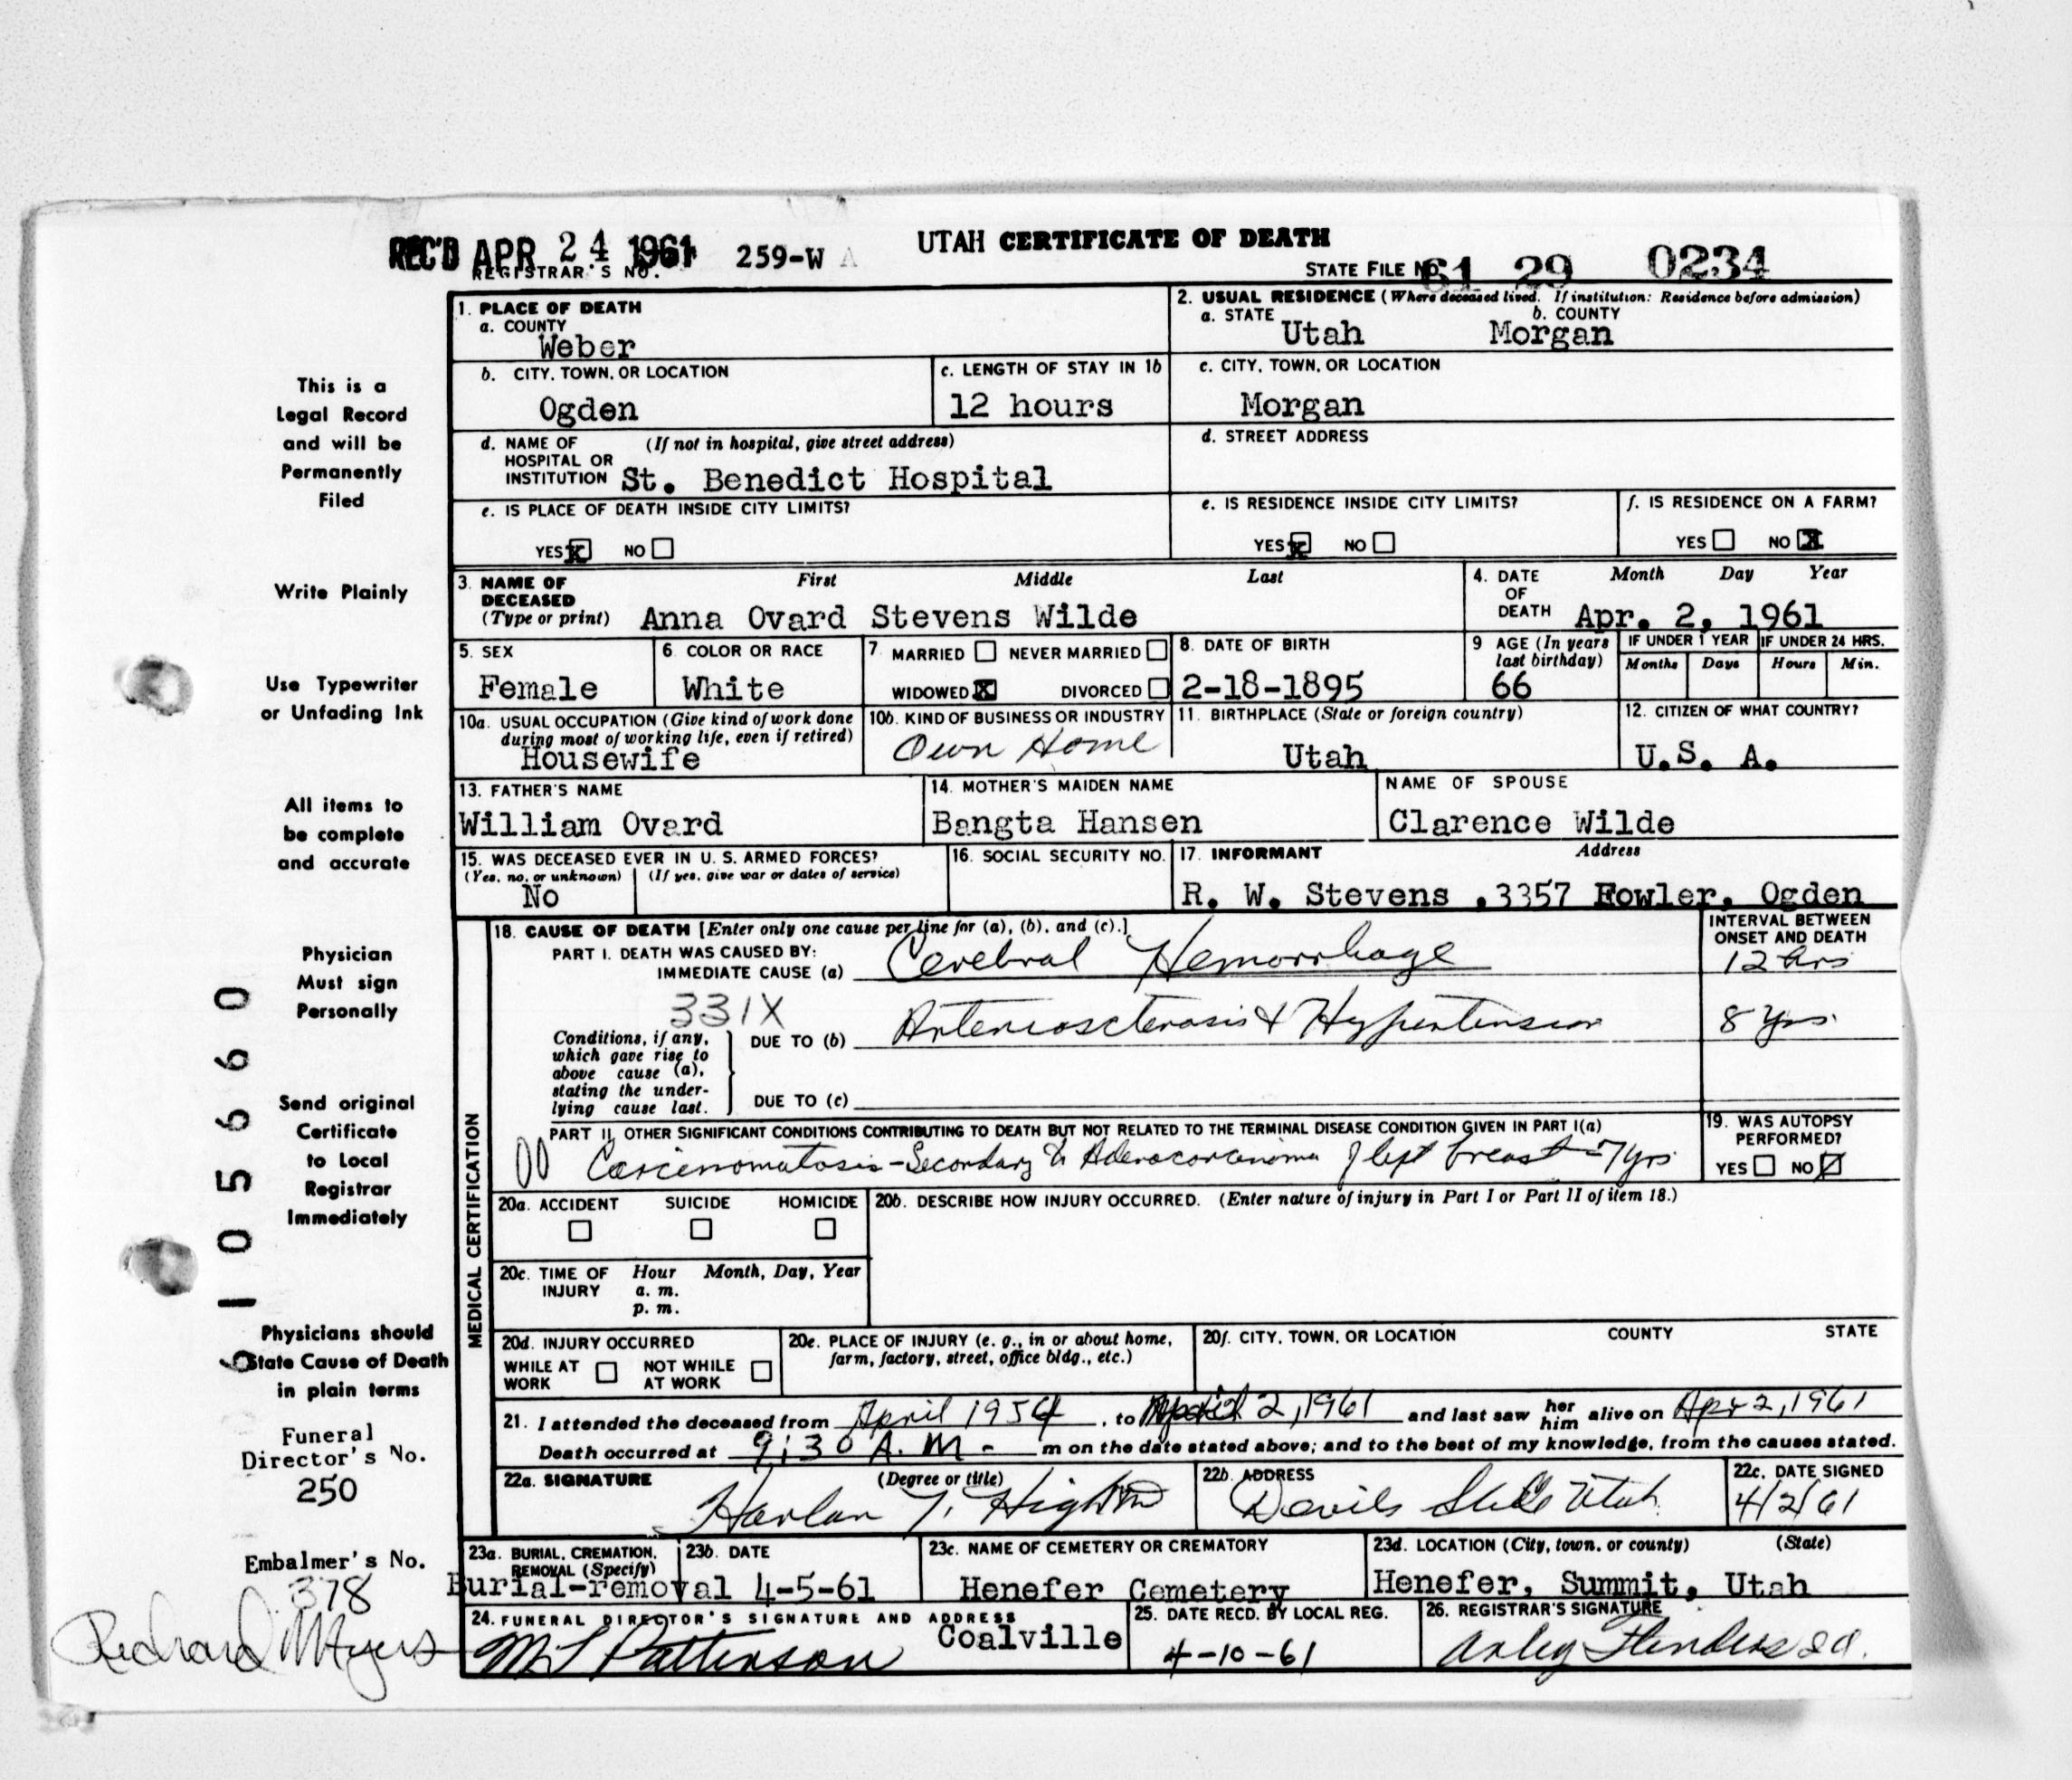 REC'D APR 24 1961 259-W A UTAH CERTIFICATE OF DEATH
REGISTRAR'S NO. STATE FILE NO. 61 29 0234
1. PLACE OF DEATH
a. COUNTY
Weber
2. USUAL RESIDENCE (Where deceased lived. If institution: Residence before admission)
a. STATE b. COUNTY
Utah Morgan
b. CITY, TOWN, OR LOCATION
Ogden
c. LENGTH OF STAY IN 1b
12 hours
c. CITY, TOWN, OR LOCATION
Morgan
d. NAME OF (If not in hospital, give street address)
HOSPITAL OR
INSTITUTION St. Benedict Hospital
d. STREET ADDRESS
e. IS PLACE OF DEATH INSIDE CITY LIMITS?
YES x NO
e. IS RESIDENCE INSIDE CITY LIMITS?
YES x NO
f. IS RESIDENCE ON A FARM?
YES NO X
3. NAME OF First Middle Last
DECEASED
(Type or print) Anna Ovard Stevens Wilde
4. DATE Month Day Year
OF
DEATH Apr. 2, 1961
5. SEX
Female
6. COLOR OR RACE
White
7. MARRIED NEVER MARRIED
WIDOWED X DIVORCED
8. DATE OF BIRTH
2-18-1895
9 AGE (In years
last birthday)
66
IF UNDER 1 YEAR IF UNDER 24 HRS.
Months Days Hours Min.
10a. USUAL OCCUPATION (Give kind of work done
during most of working life, even if retired)
Housewife
10b. KIND OF BUSINESS OR INDUSTRY
Own Home
11. BIRTHPLACE (State or foreign country)
Utah
12. CITIZEN OF WHAT COUNTRY?
U.S. A.
13. FATHER'S NAME
William Ovard
14. MOTHER'S MAIDEN NAME
Bangta Hansen
NAME OF SPOUSE
Clarence Wilde
15. WAS DECEASED EVER IN U. S. ARMED FORCES?
(Yes, no, or unknown) (If yes, give war or dates of service)
No
16. SOCIAL SECURITY NO.
17. INFORMANT Address
R. W. Stevens ,3357 Fowler, Ogden
MEDICAL CERTIFICATION
18. CAUSE OF DEATH [Enter only one cause per line for (a), (b), and (c).]
PART I. DEATH WAS CAUSED BY:
IMMEDIATE CAUSE (a) Cerebral Hemorrhage
INTERVAL BETWEEN
ONSET AND DEATH
12 hrs
331X
Conditions, if any,
which gave rise to
above cause (a),
stating the under-
lying cause last.
DUE TO (b) Arteriosclerosis & Hypertension 8 yrs.
DUE TO (c)
PART II. OTHER SIGNIFICANT CONDITIONS CONTRIBUTING TO DEATH BUT NOT RELATED TO THE TERMINAL DISEASE CONDITION GIVEN IN PART I(a)
Carcinomatosis - Secondary to Adenocarcinoma of left breast - 7 yrs.
19. WAS AUTOPSY
PERFORMED?
YES NO
20a. ACCIDENT SUICIDE HOMICIDE
20b. DESCRIBE HOW INJURY OCCURRED. (Enter nature of injury in Part I or Part II of item 18.)
20c. TIME OF Hour Month, Day, Year
INJURY a. m.
p. m.
20d. INJURY OCCURRED
WHILE AT NOT WHILE
WORK AT WORK
20e. PLACE OF INJURY (e. g., in or about home,
farm, factory, street, office bldg., etc.)
20f. CITY, TOWN, OR LOCATION COUNTY STATE
21. I attended the deceased from April 1954, to April 2, 1961 and last saw her him alive on Apr 2, 1961
Death occurred at 9:30 A. M - m on the date stated above; and to the best of my knowledge, from the causes stated.
22a. SIGNATURE (Degree or title)
Harlan
22b. ADDRESS
Devils Slide Utah
22c. DATE SIGNED
4/2/61
23a. BURIAL, CREMATION,
REMOVAL (Specify)
Burial-removal
23b. DATE
4-5-61
23c. NAME OF CEMETERY OR CREMATORY
Henefer Cemetery
23d. LOCATION (City, town, or county) (State)
Henefer, Summit, Utah
24. FUNERAL DIRECTOR'S SIGNATURE AND ADDRESS
Pattinson Coalville
25. DATE RECD. BY LOCAL REG.
4-10-61
26. REGISTRAR'S SIGNATURE
This is a
Legal Record
and will be
Permanently
Filed
Write Plainly
Use Typewriter
or Unfading Ink
All items to
be complete
and accurate
Physician
Must sign
Personally
Send original
Certificate
to Local
Registrar
Immediately
Physicians should
State Cause of Death
in plain terms
Funeral
Director's No.
250
Embalmer's No.
378
Richard Myers
6105660